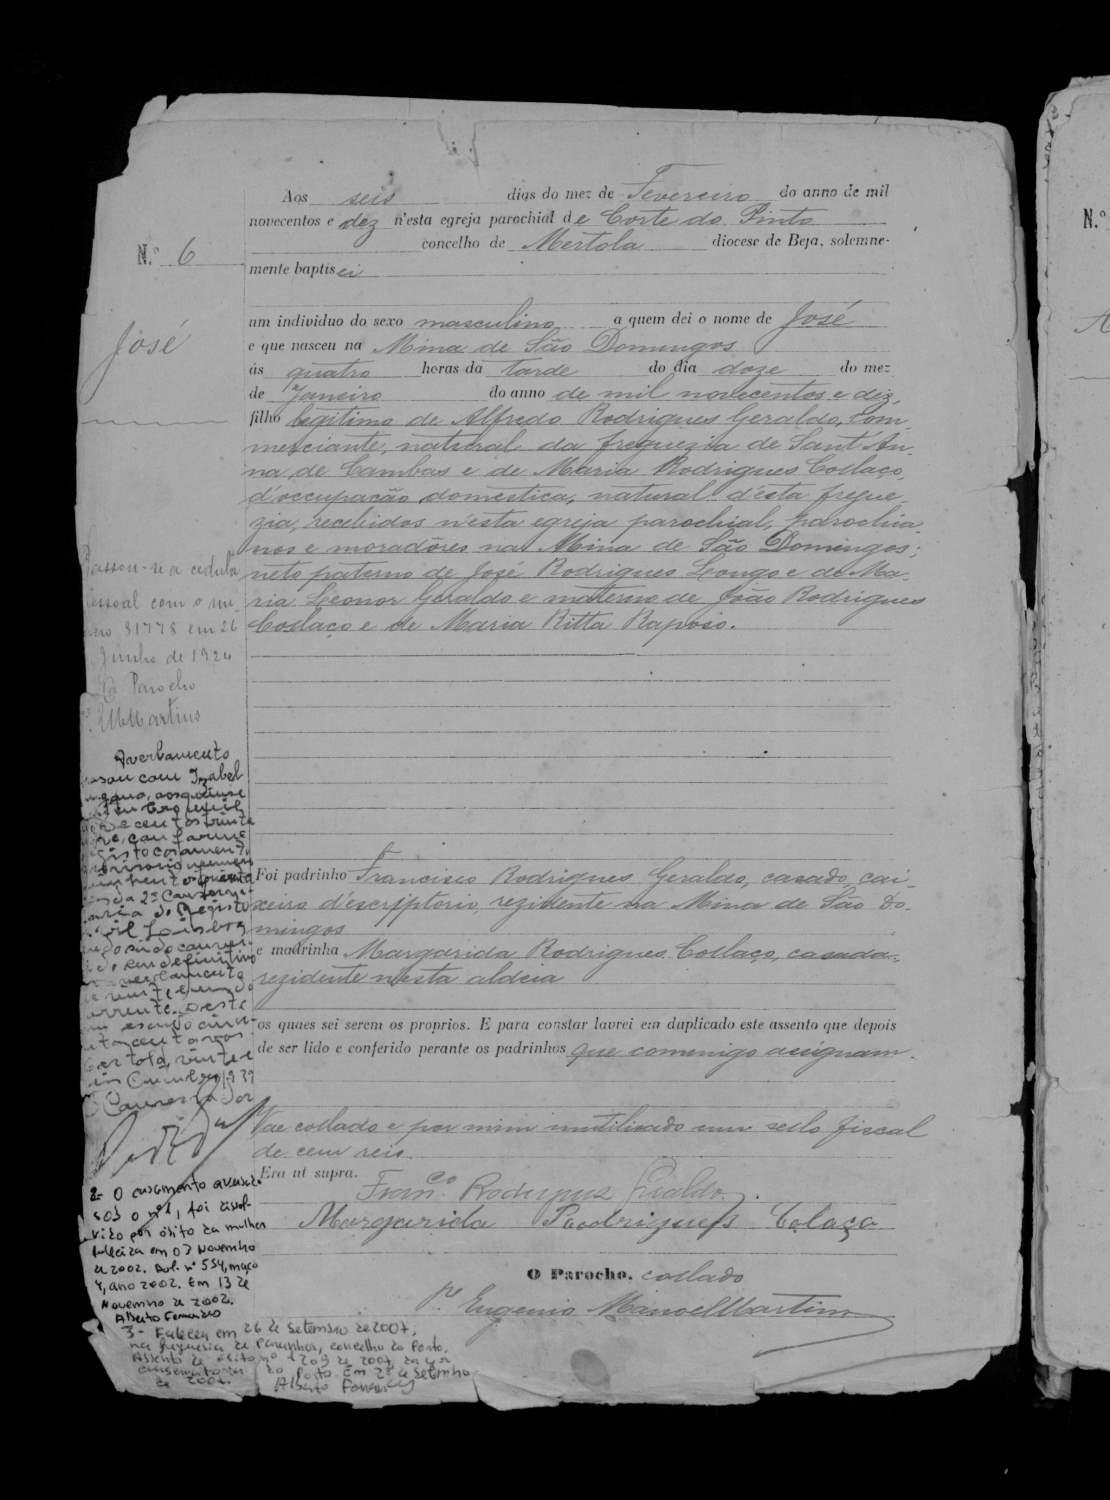 Aos seis dias do mez de Fevereiro do anno de mil
novecentos e dez n'esta egreja parochial de Corte do Pinto
concelho de Mertola diocese de Beja, solemne-
mente baptisei
N.º 6
José
um individuo do sexo masculino a quem dei o nome de José
e que nasceu na Mina de São Domingos
ás quatro horas da tarde do dia doze do mez
de Janeiro do anno de mil novecentos e dez,
filho legitimo de Alfredo Rodrigues Geraldo, com-
merciante, natural da freguezia de Sant'An-
na de Cambas e de Maria Rodrigues Collaço,
d'occupação domestica, natural d'esta fregue-
zia, recebidos n'esta egreja parochial, parochia-
nos e moradôres na Mina de São Domingos;
neto paterno de José Rodrigues Longo e de Ma-
ria Leonor Geraldo e materno de João Rodrigues
Collaço e de Maria Ritta Raposo.
Passou-se a cedula
pessoal com o nu-
mero 81778 em 26
Junho de 1924
O Parocho
EMMartins
Averbamento
casou com Izabel
aos quinze
conforme
registo casamento
da 2ª Conserva-
toria do Registo
Civil Lisboa
em definitivo
averbamento
vinte e um do
corrente.
escudo
centavos
Mertola, vinte e
1939
O Conservador
2- O casamento averba-
sob o nº 1, foi dissol-
vido por óbito da mulher
falecida em 03 Novembro
de 2002. Avb. nº 554, maço
4, ano 2002. Em 13 de
Novembro de 2002.
Alberto Fernandes
3- Faleceu em 26 de Setembro de 2007,
na freguesia de Paranhos, concelho do Porto,
Assento de óbito nº 1209 de 2007, da
Conservatória do Porto. Em 28 de Setembro
de 2007.
Alberto Fernandes
Foi padrinho Francisco Rodrigues Geraldo, casado, cai-
xeiro d'escriptorio, rezidente na Mina de São Do-
mingos
e madrinha Margarida Rodrigues Collaço, casada,
rezidente nesta aldeia
os quaes sei serem os proprios. E para constar lavrei em duplicado este assento que depois
de ser lido e conferido perante os padrinhos que commigo assignam.
Vae collado e por mim inutilisado um sello fiscal
de cem reis.
Era ut supra.
Fran.co Rodrigues Geraldo.
Margarida Roodrigues Colaço
O Parocho, collado
P.e Eugenio Manoel Martins
N.º